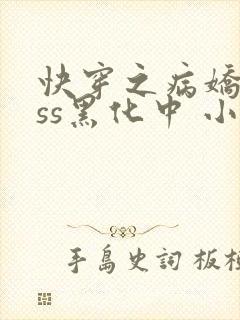 快穿之病嬌
ss黑化中 小
手島史詞 板桓